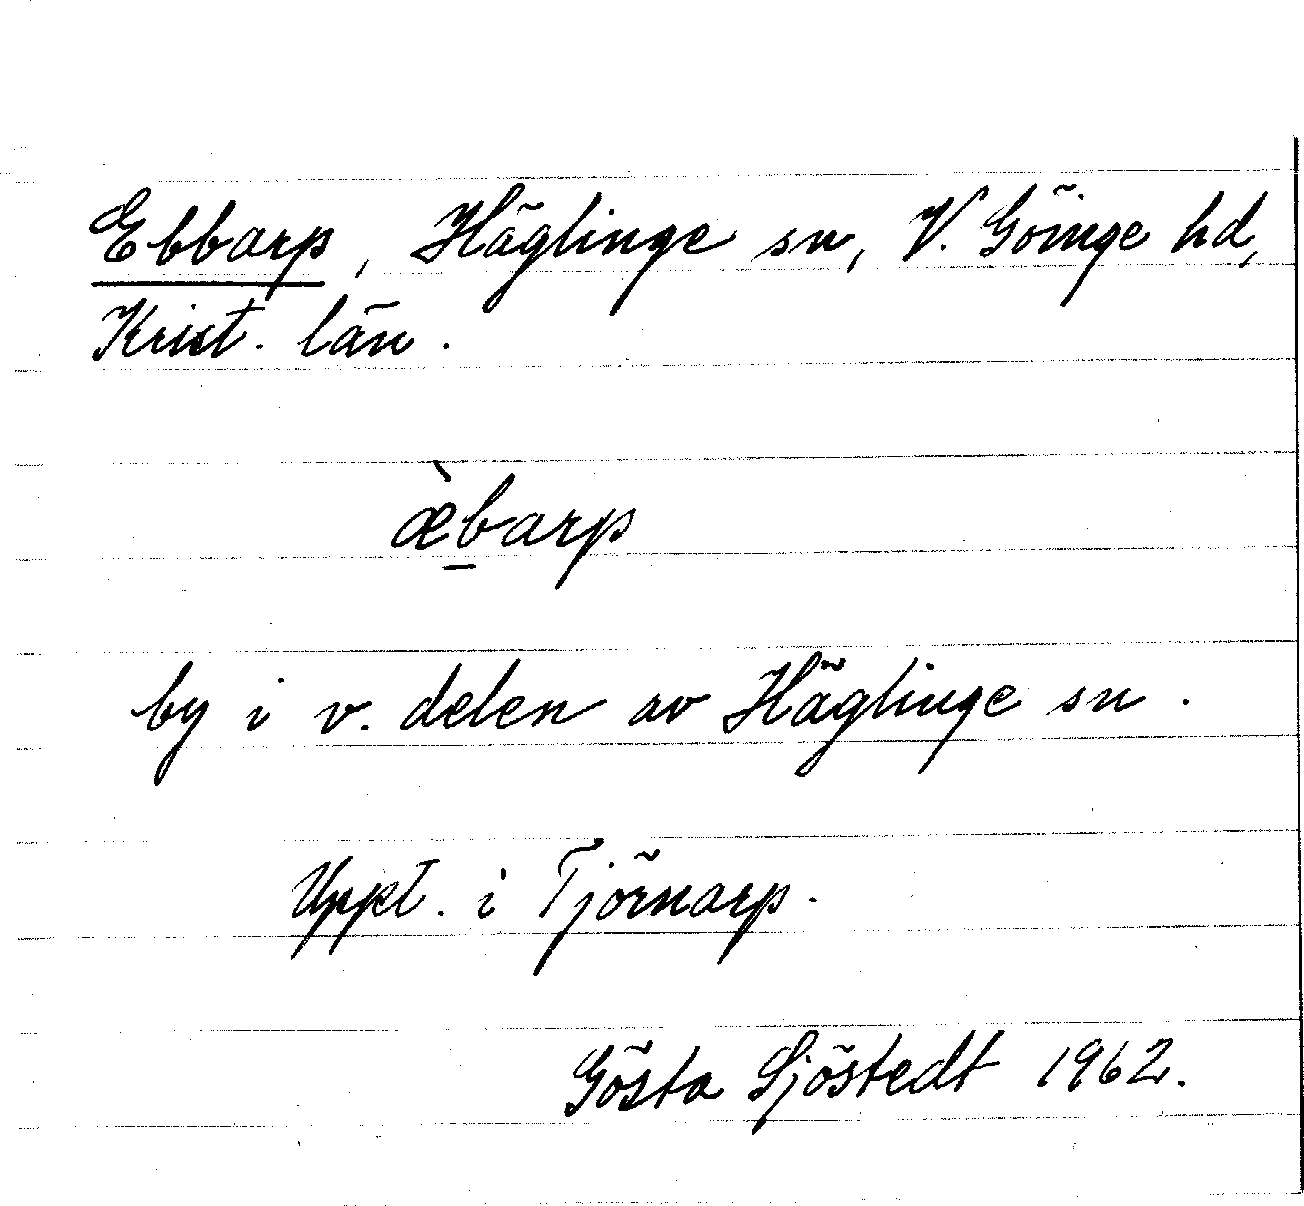 Ebbarp, Häglinge sn, V. Göinge hd,
Krist. län.
æ̀b̲arp
by i v. delen av Häglinge sn.
Uppt. i Tjörnarp.
Gösta Sjöstedt 1962.